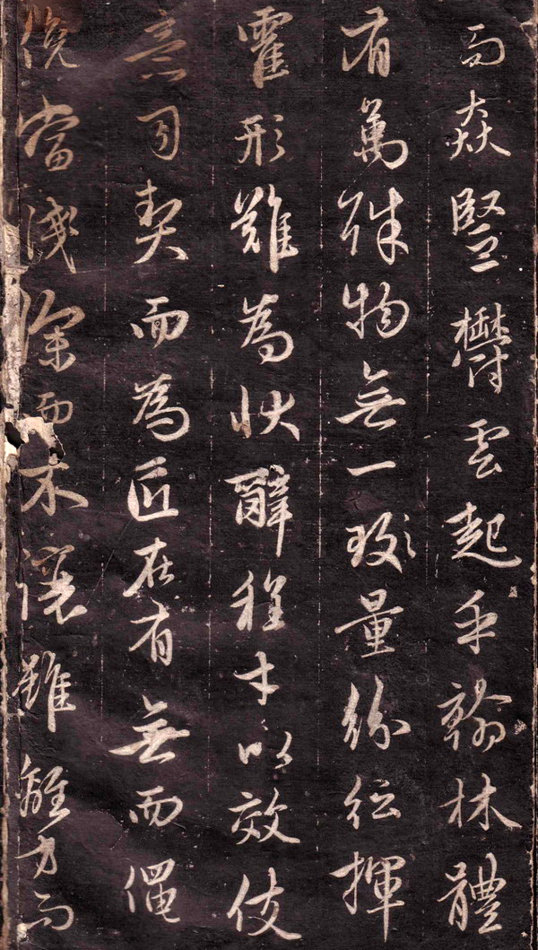 而猋竪欝雲起乎翰林體
有萬殊物無一致量紛紜揮
霍形難為狀辭程才以效伎
意司契而為匠在有無而僶
俛當淺深而不讓雖離方而